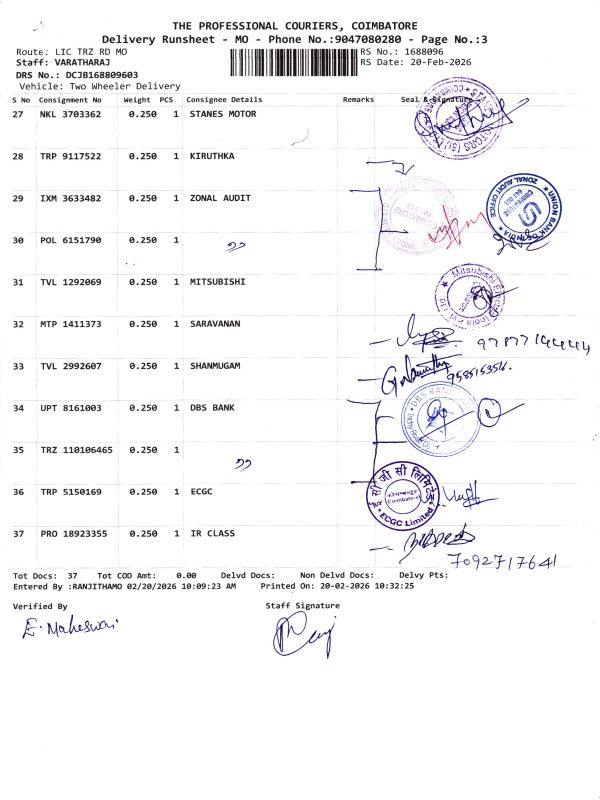 THE PROFESSIONAL COURIERS, COIMBATORE
Delivery Runsheet - MO - Phone No.:9047080280 - Page No.:3
Route: LIC TRZ RD MO
RS No.: 1688096
Staff: VARATHARAJ
RS Date: 20-Feb-2026
DRS No.: DCJB168809603
Vehicle: Two Wheeler Delivery
S No Consignment No Weight PCS Consignee Details Remarks Seal & Signature
27 NKL 3703362 0.250 1 STANES MOTOR
28 TRP 9117522 0.250 1 KIRUTHKA
29 IXM 3633482 0.250 1 ZONAL AUDIT
UNION BANK OF INDIA
ZONAL AUDIT OFFICE
COIMBATORE
641 001
30 POL 6151790 0.250 1 ,,
31 TVL 1292069 0.250 1 MITSUBISHI
Mitsubishi
India Pvt. Ltd.
32 MTP 1411373 0.250 1 SARAVANAN
9787719444
33 TVL 2992607 0.250 1 SHANMUGAM
958515354.
34 UPT 8161003 0.250 1 DBS BANK
DBS BANK
35 TRZ 110106465 0.250 1 ,,
36 TRP 5150169 0.250 1 ECGC
सी जी सी लिमिटेड
Coimbatore
ECGC Limited
37 PRO 18923355 0.250 1 IR CLASS
7092717641
Tot Docs: 37 Tot COD Amt: 0.00 Delvd Docs: Non Delvd Docs: Delvy Pts:
Entered By :RANJITHAMO 02/20/2026 10:09:23 AM Printed On: 20-02-2026 10:32:25
Verified By
Staff Signature
E. Maheswari